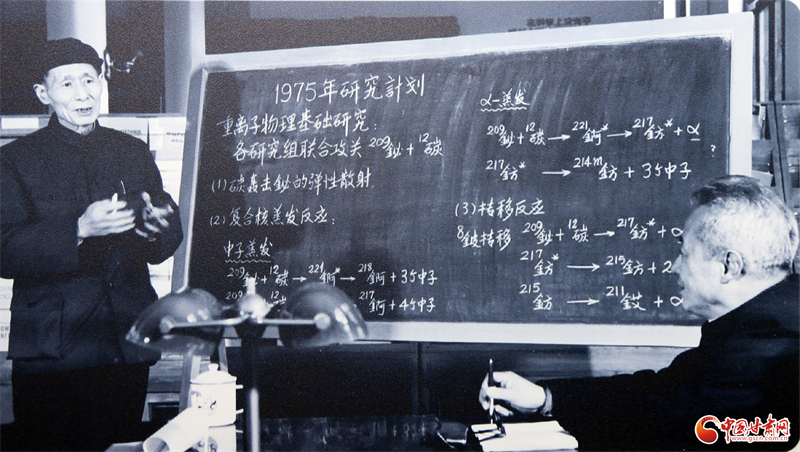 1975年研究計划
重离子物理基础研究:
各研究组联合攻关 ²⁰⁹鉍+¹²碳
(1)碳轰击鉍的弹性散射
(2)复合核蒸发反应:
中子蒸发
²⁰⁹鉍+¹²碳→²²¹錒*→²¹⁸錒+3个中子
²⁰⁹ ¹² ²¹⁷錒+4个中子
α-蒸发
²⁰⁹鉍+¹²碳→²²¹錒*→²¹⁷鈁*+α
?
²¹⁷鈁*→²¹⁴ᵐ鈁+3个中子
(3)转移反应
⁸鈹转移 ²⁰⁹鉍+¹²碳→²¹⁷鈁*+α
²¹⁷鈁*→²¹⁵鈁+2
²¹⁵鈁→²¹¹+α
中国甘肃网
www.gscn.com.cn